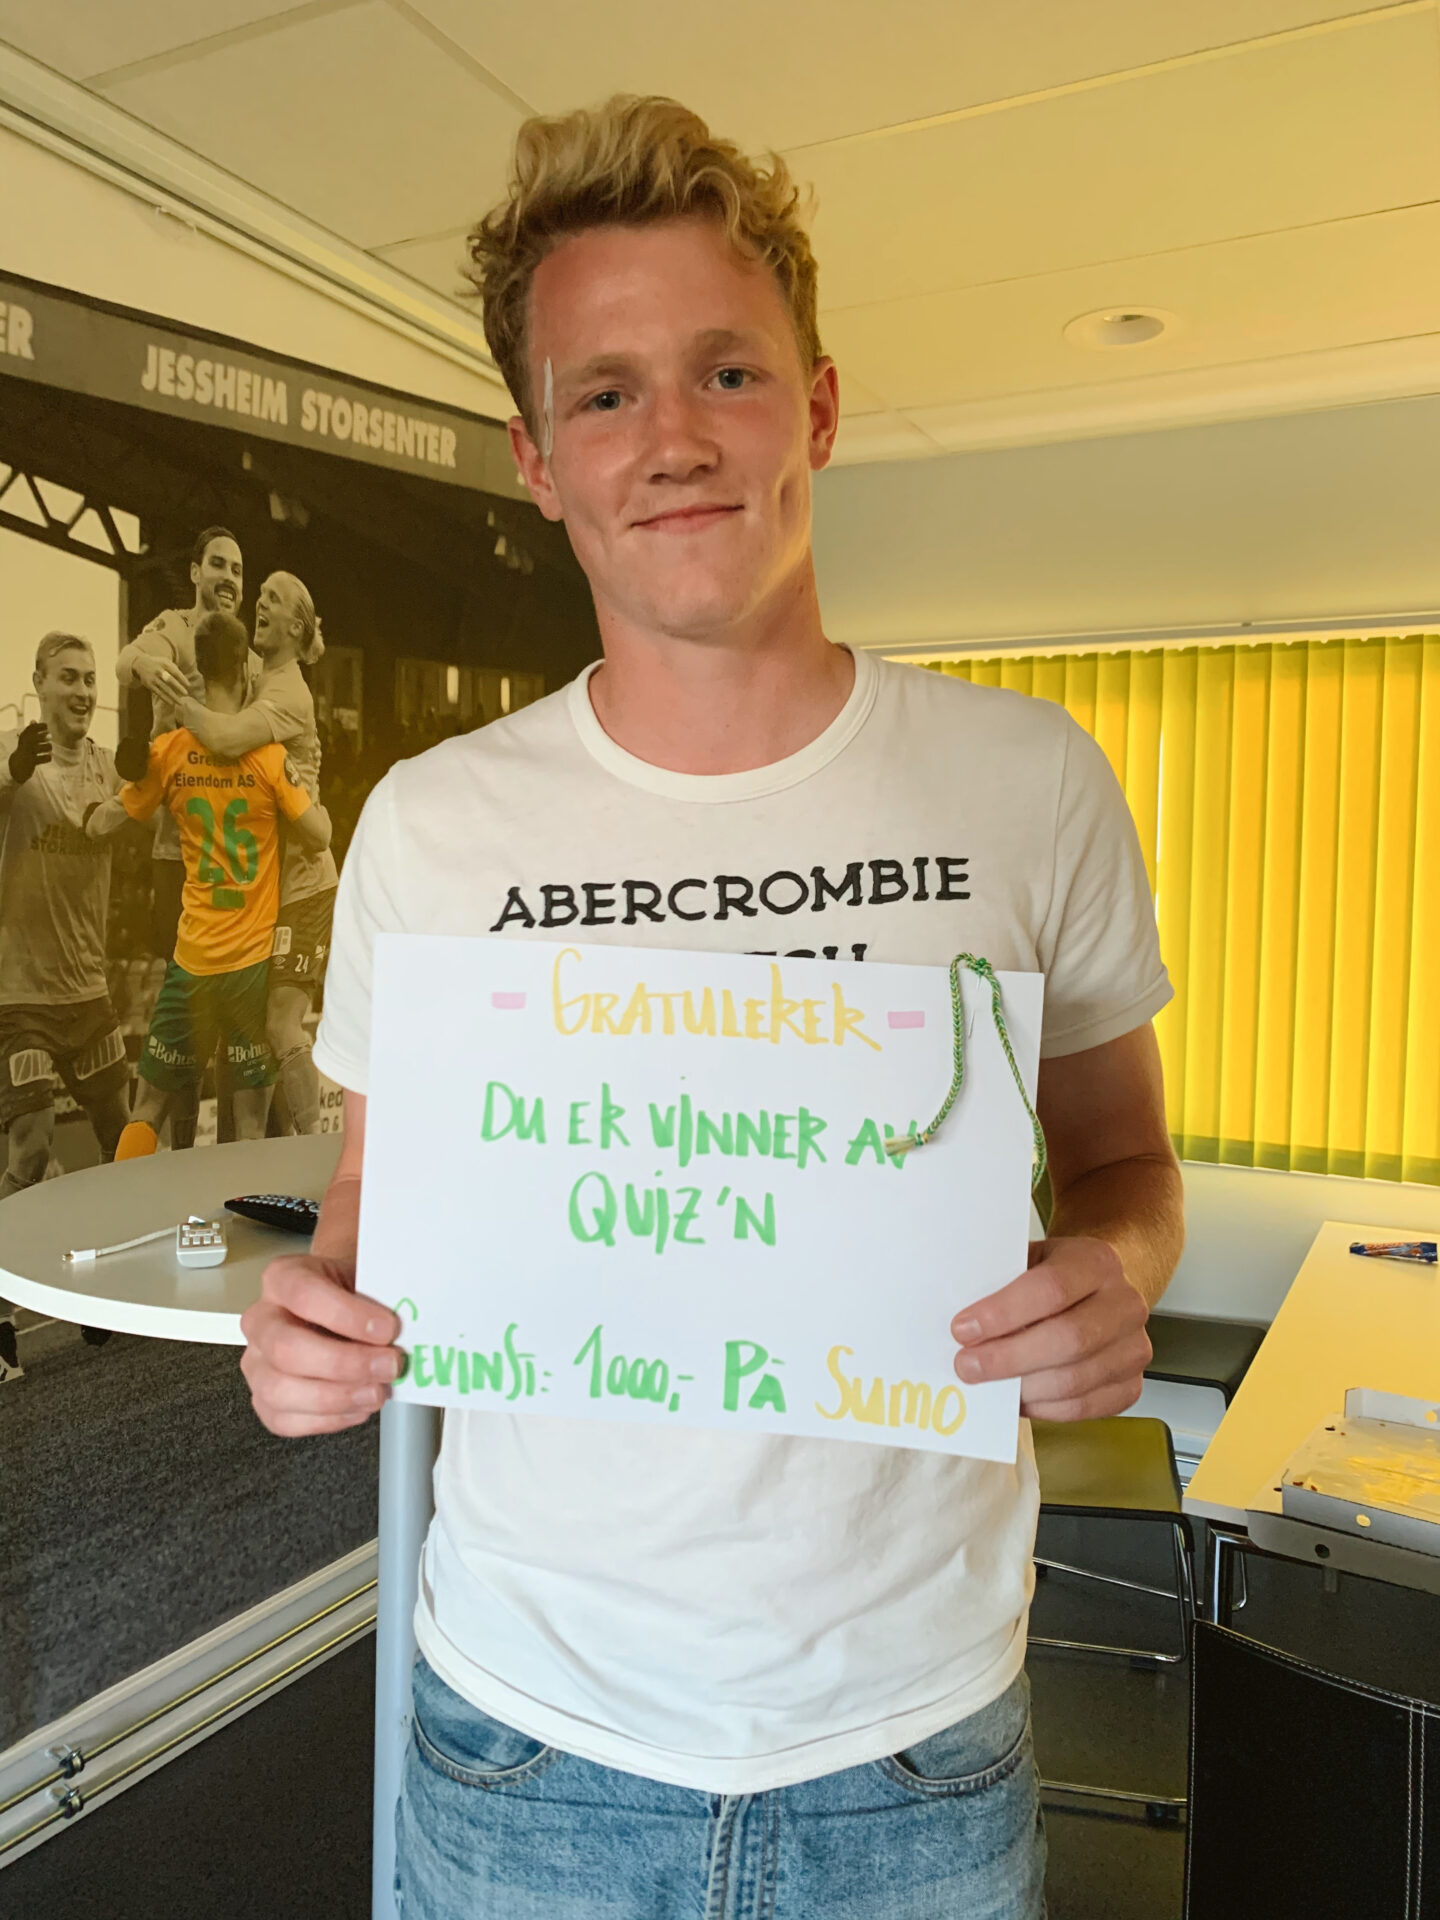 ER
JESSHEIM STORSENTER
Eiendom AS
26
Bohus
Bohus
24
ABERCROMBIE
- GRATULERER -
DU ER VINNER AV
QUIZ'N
GEVINST: 1000,- PÅ SUMO